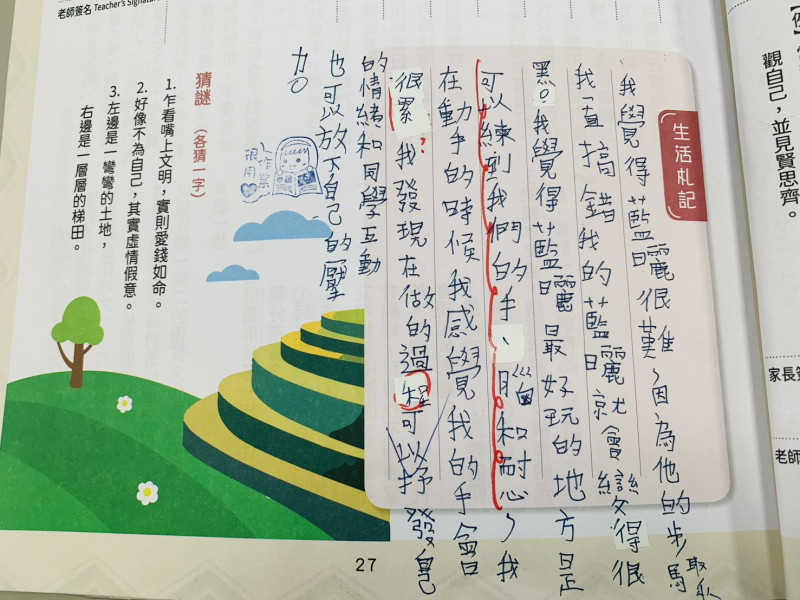 觀自己，並見賢思齊。
家長簽
老師
生活札記
我覺得藍曬很難，因為他的步驟
我一直搞錯我的藍曬就會變得很
黑。我覺得藍曬最好玩的地方是
可以練到我們的手、腦和耐心，我
在動手的時候我感覺我的手會
很累？我發現在做的過程可以抒發自己
的情緒和同學互動
也可以放下自己的壓
力。
很作
用業
老師簽名 Teacher's Signature
猜謎 （各猜一字）
1. 乍看嘴上文明，實則愛錢如命。
2. 好像不為自己，其實虛情假意。
3. 左邊是一彎彎的土地，
右邊是一層層的梯田。
27